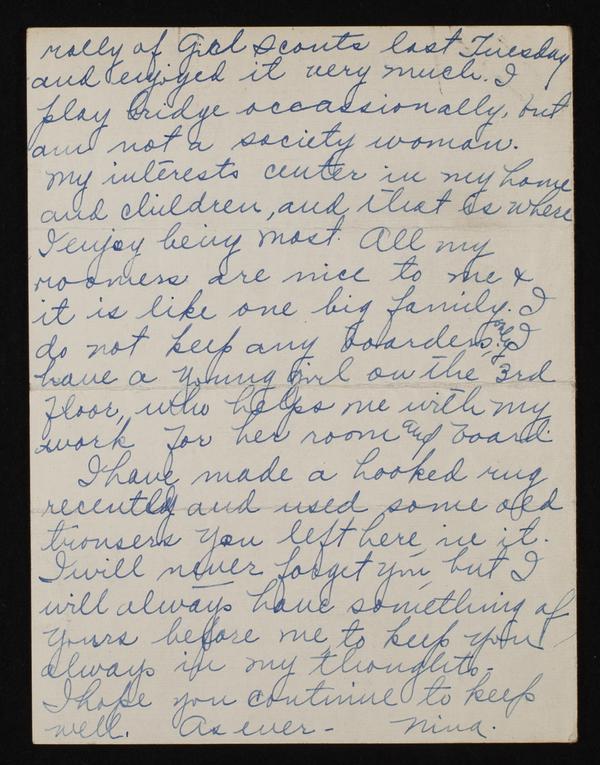 rally of Girl Scouts last Tuesday
and enjoyed it very much. I
play bridge occassionally, but
am not a society woman.
My interests center in my home
and children, and that is where
I enjoy being most. All my
roomers are nice to me &
it is like one big family. I
do not keep any boarders, only I
have a young girl on the 3rd
floor, who helps me with my
work for her room and board.
I have made a hooked rug
recently and used some old
trousers you left here in it.
I will never forget you, but I
will always have something of
yours before me to keep you
always in my thoughts.
I hope you continue to keep
well. As ever - Nina.